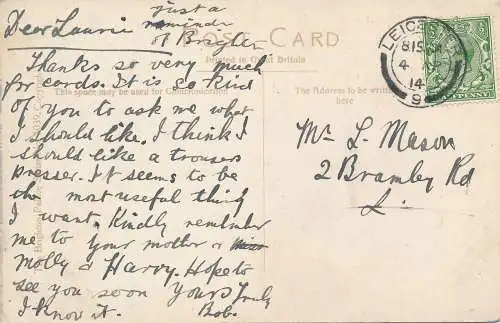 Just a
Dear Laurie reminder
of B
POST CARD
Printed in Great Britain
This space may be used for Communication
The Address to be written
here
Thanks so very much
for cards. It is so kind
of you to ask me what
I should like. I think I
should like a trousers
presser. It seems to be
the most useful thing
I want. Kindly remember
me to your mother &
Molly & Harry. Hope to
see you soon Yours Truly
I know it. Bob.
LEICESTER
815
4
14
9
Mr L. Mason
2 Bramley Rd
L